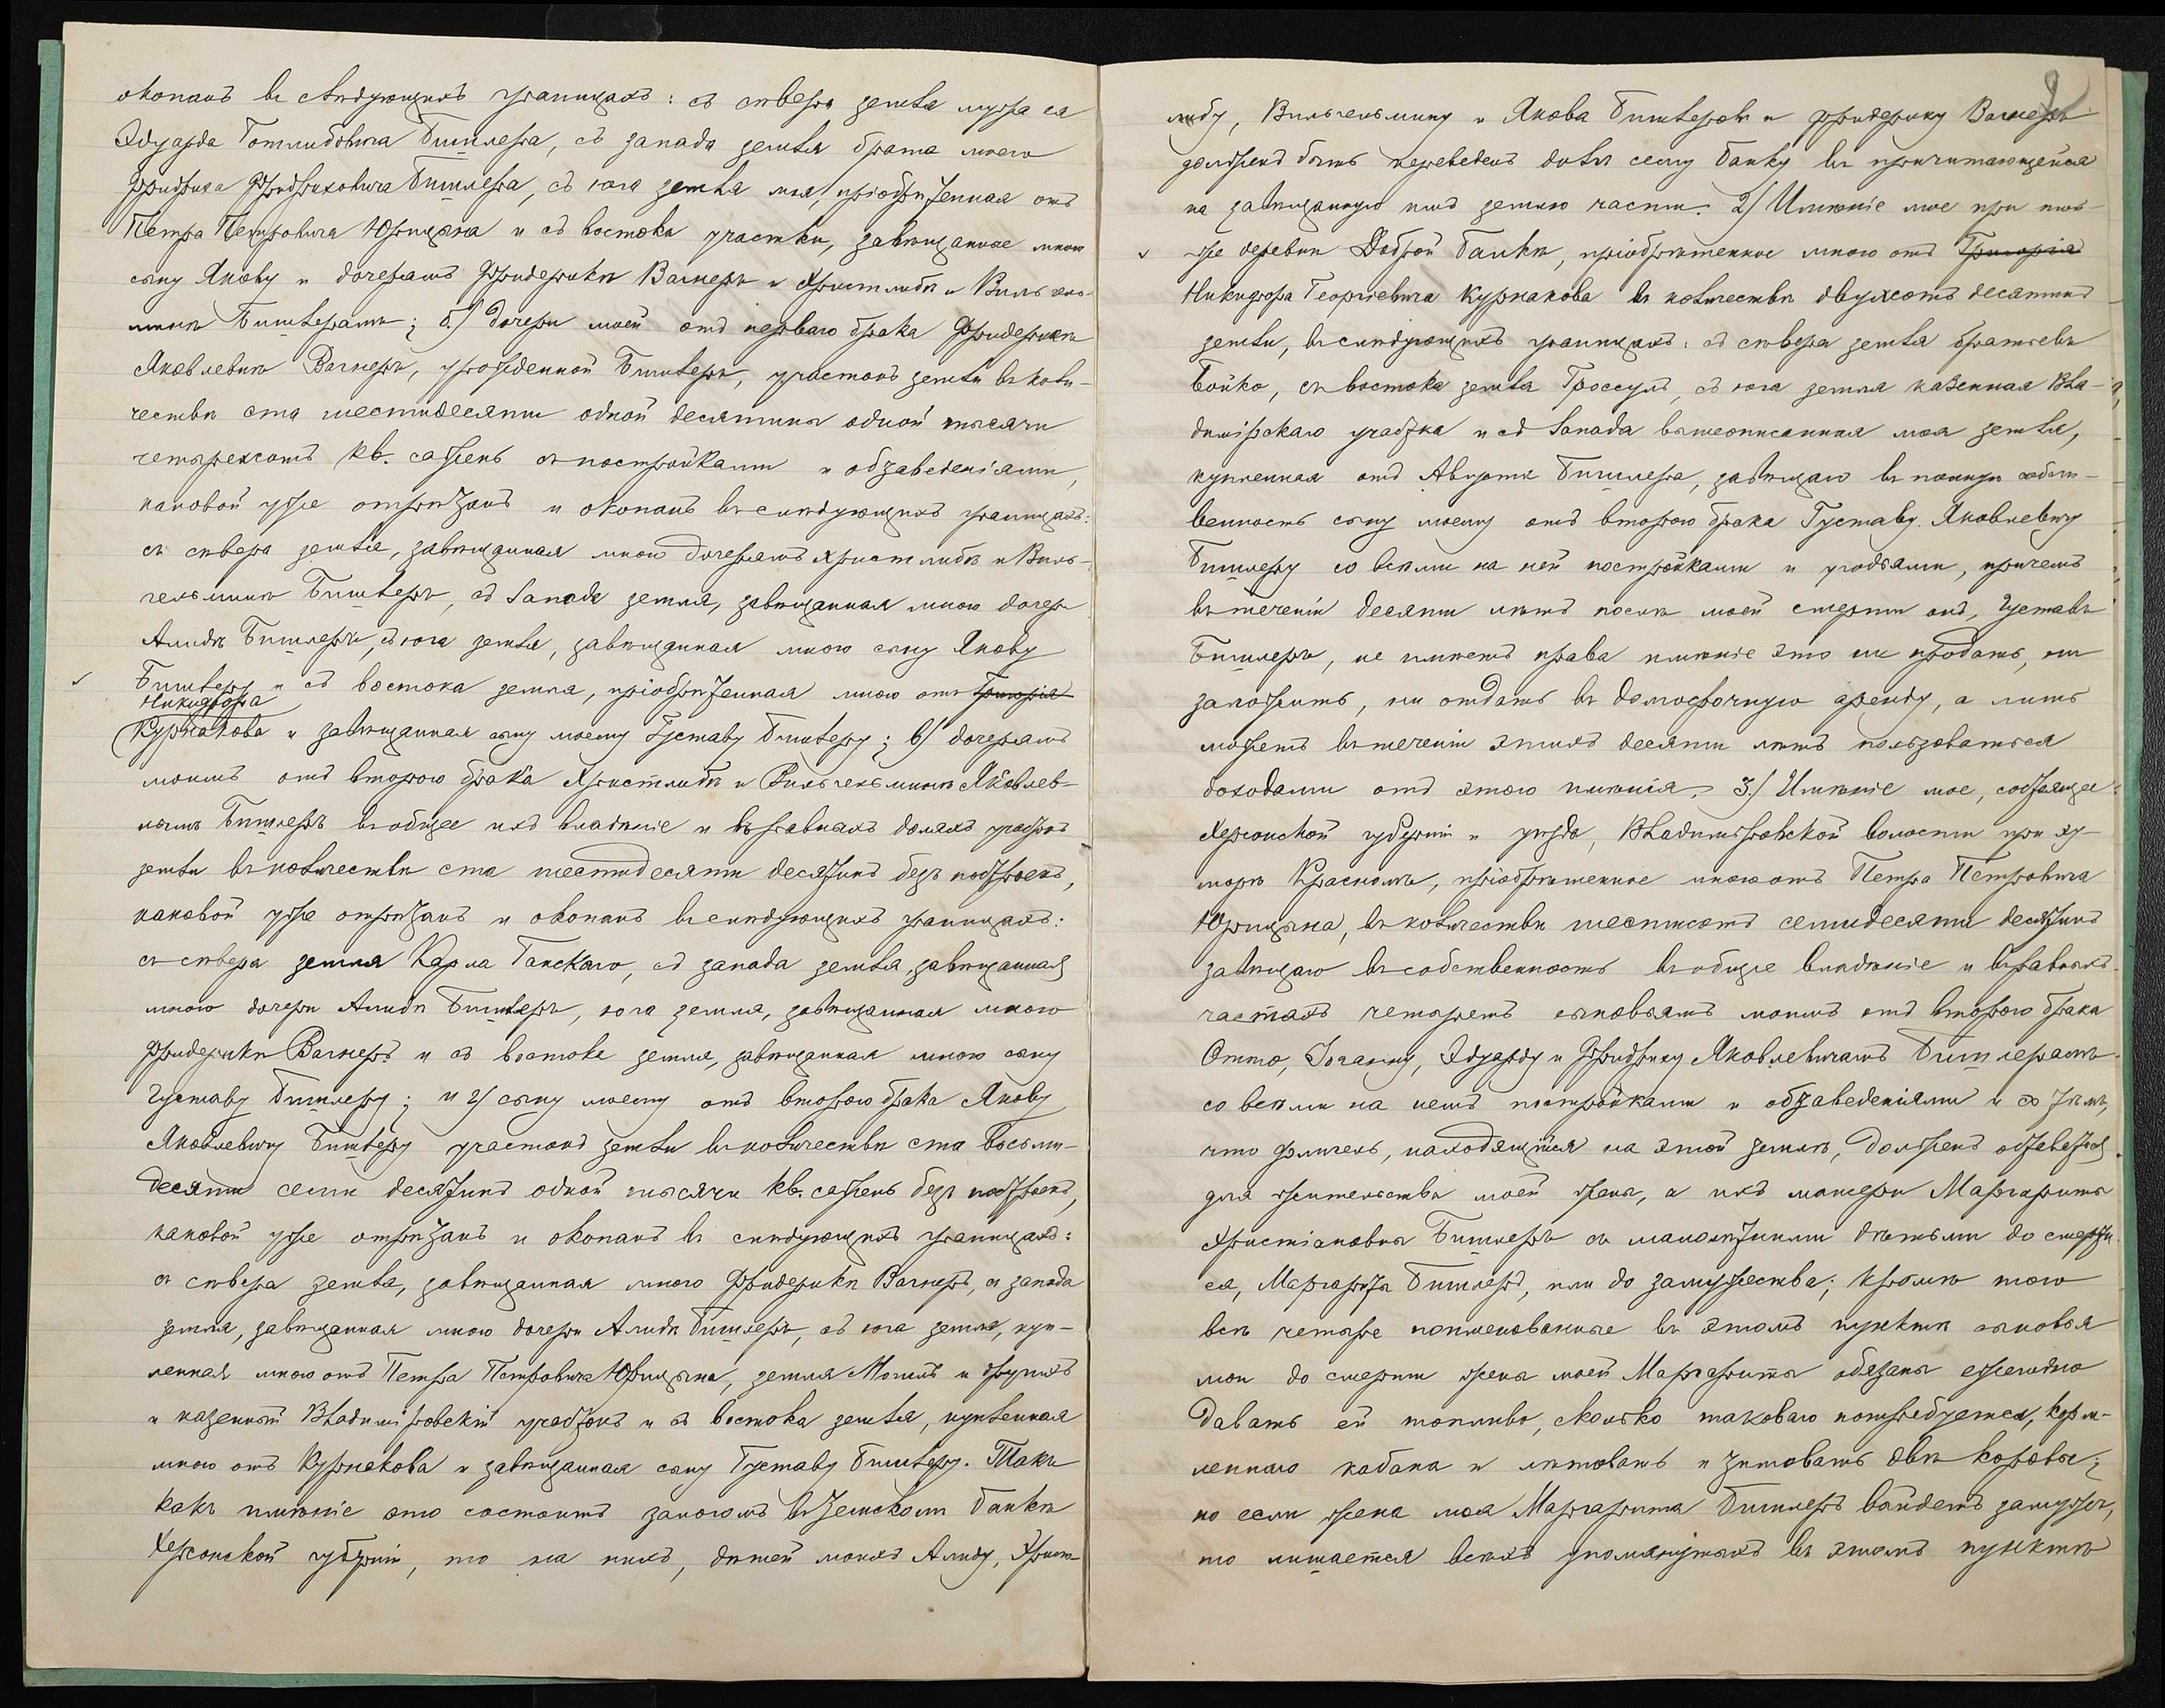 окопанъ въ слѣдующихъ границахъ: съ сѣвера земля мужа ея
Эдуарда Готлибовича Бишлера, съ запада земля брата моего
Фридриха Фридриховича Бишлера, съ юга земля моя, пріобрѣтенная отъ
Петра Петровича Юрицына и съ востока участки, завѣщанные мною
сыну Якову и дочерямъ Фридерикѣ Вагнеръ и Христлибѣ и Вильгель-
минѣ Бишлерамъ; б.) Дочери моей отъ перваго брака Фридерикѣ
Яковлевнѣ Вагнеръ, урожденной Бишлеръ, участокъ земли въ коли-
чествѣ ста шестидесяти одной десятины одной тысячи
четырехсотъ кв. сажень съ постройками и обзаведеніями,
каковой уже отрѣзанъ и окопанъ въ слѣдующихъ границахъ:
съ сѣвера земля, завѣщанная мною дочерямъ Христлибѣ и Виль-
гельминѣ Бишлеръ, съ запада земля, завѣщанная мною дочери
Алидѣ Бишлеръ, съ юга земля, завѣщанная мною сыну Якову
Бишлеру и съ востока земля, пріобрѣтенная мною отъ Григорія
Никифора
Курнакова и завѣщанная сыну моему Густаву Бишлеру; в) дочерямъ
моимъ отъ второго брака Христлибѣ и Вильгельминѣ Яковлев-
нымъ Бишлеръ въ общее ихъ владѣніе и въ равныхъ доляхъ участокъ
земли въ количествѣ ста шестидесяти десятинъ безъ построекъ,
каковой уже отрѣзанъ и окопанъ въ слѣдующихъ границахъ:
съ сѣвера земля Карла Ганскаго, съ запада земля, завѣщанная
мною дочери Алидѣ Бишлеръ, юга земля, завѣщанная мною
Фридерикѣ Вагнеръ и съ востока земля, завѣщанная мною сыну
Густаву Бишлеру; и г) сыну моему отъ второго брака Якову
Яковлевичу Бишлеру участокъ земли въ количествѣ ста восьми-
десяти семи десятинъ одной тысячи кв. сажень безъ построекъ,
каковой уже отрѣзанъ и окопанъ въ слѣдующихъ границахъ:
съ сѣвера земля, завѣщанная мною Фридерикѣ Вагнеръ, съ запада
земля, завѣщанная мною дочери Алидѣ Бишлеръ, съ юга земля, куп-
ленная мною отъ Петра Петровича Юрицына, земля и другихъ
и казенный Владиміровскій участокъ и съ востока земля, купленная
мною отъ Курнакова и завѣщанная сыну Густаву Бишлеру. Такъ
какъ имѣніе это состоитъ залогомъ въ Земскомъ банкѣ
Херсонской губерніи, то на нихъ, дѣтей моихъ Алиду, Христ-
либу, Вильгельмину и Якова Бишлеровъ и Фридерику Вагнеръ
долженъ быть переведенъ долгъ сему банку въ причитающейся
на завѣщанную имъ землю части. 2) Имѣніе мое при той-
же деревнѣ Доброй Балкѣ, пріобрѣтенное мною отъ Григорія
Никифора Георгіевича Курнакова въ количествѣ двухсотъ десятинъ
земли, въ слѣдующихъ границахъ: съ сѣвера земля братьевъ
Бойко, съ востока земля Гроссулъ, съ юга земля казенная Вла-
димірскаго участка и съ запада вышеописанная моя земля,
купленная отъ Августа Бишлера, завѣщаю въ полную собст-
венность сыну моему отъ второго брака Густаву Яковлевичу
Бишлеру со всѣми на ней постройками и угодьями, причемъ
въ теченіи десяти лѣтъ послѣ моей смерти онъ, Густавъ
Бишлеръ, не имѣетъ права имѣніе это ни продать, ни
заложить, ни отдать въ долгосрочную аренду, а лишь
можетъ въ теченіи этихъ десяти лѣтъ пользоваться
доходами отъ этого имѣнія. 3.) Имѣніе мое, состоящее
Херсонской губерніи и уѣзда, Владиміровской волости при ху-
торѣ Красномъ, пріобрѣтенное мною отъ Петра Петровича
Юрицына, въ количествѣ шестисотъ семидесяти десятинъ
завѣщаю въ собственность въ общее владѣніе и въ равныхъ
частяхъ четыремъ сыновьямъ моимъ отъ второго брака
Отто, Іоганну, Эдуарду и Фридриху Яковлевичамъ Бишлерамъ
со всѣми на немъ постройками и обзаведеніями и съ тѣмъ,
что флигель, находящійся на этой землѣ, долженъ оставаться
для жительства моей жены, а ихъ матери Маргариты
Христіановны Бишлеръ съ малолѣтними дѣтьми до смерти
ея, Маргариты Бишлеръ, или до замужества; кромѣ того
всѣ четыре поименованные въ этомъ пунктѣ сыновья
мои до смерти жены моей Маргариты обязаны ежегодно
давать ей топливо, сколько таковаго потребуется, корм-
леннаго кабана и лѣтовать и зимовать двѣ коровы;
но если жена моя Маргарита Бишлеръ выйдетъ замужъ,
то лишается всѣхъ упомянутыхъ въ этомъ пунктѣ